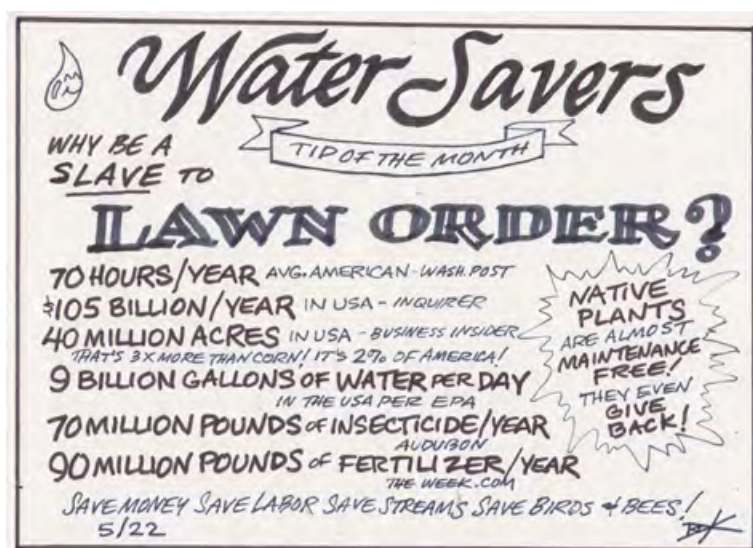 Water Savers
TIP OF THE MONTH
WHY BE A
SLAVE TO
LAWN ORDER?
70 HOURS/YEAR AVG. AMERICAN - WASH. POST
$105 BILLION/YEAR IN USA - INQUIRER
40 MILLION ACRES IN USA - BUSINESS INSIDER
THAT'S 3X MORE THAN CORN! IT'S 2% OF AMERICA!
9 BILLION GALLONS OF WATER PER DAY
IN THE USA PER EPA
70 MILLION POUNDS OF INSECTICIDE/YEAR
AUDUBON
90 MILLION POUNDS OF FERTILIZER/YEAR
THE WEEK.COM
NATIVE
PLANTS
ARE ALMOST
MAINTENANCE
FREE!
THEY EVEN
GIVE
BACK!
SAVE MONEY SAVE LABOR SAVE STREAMS SAVE BIRDS & BEES!
5/22